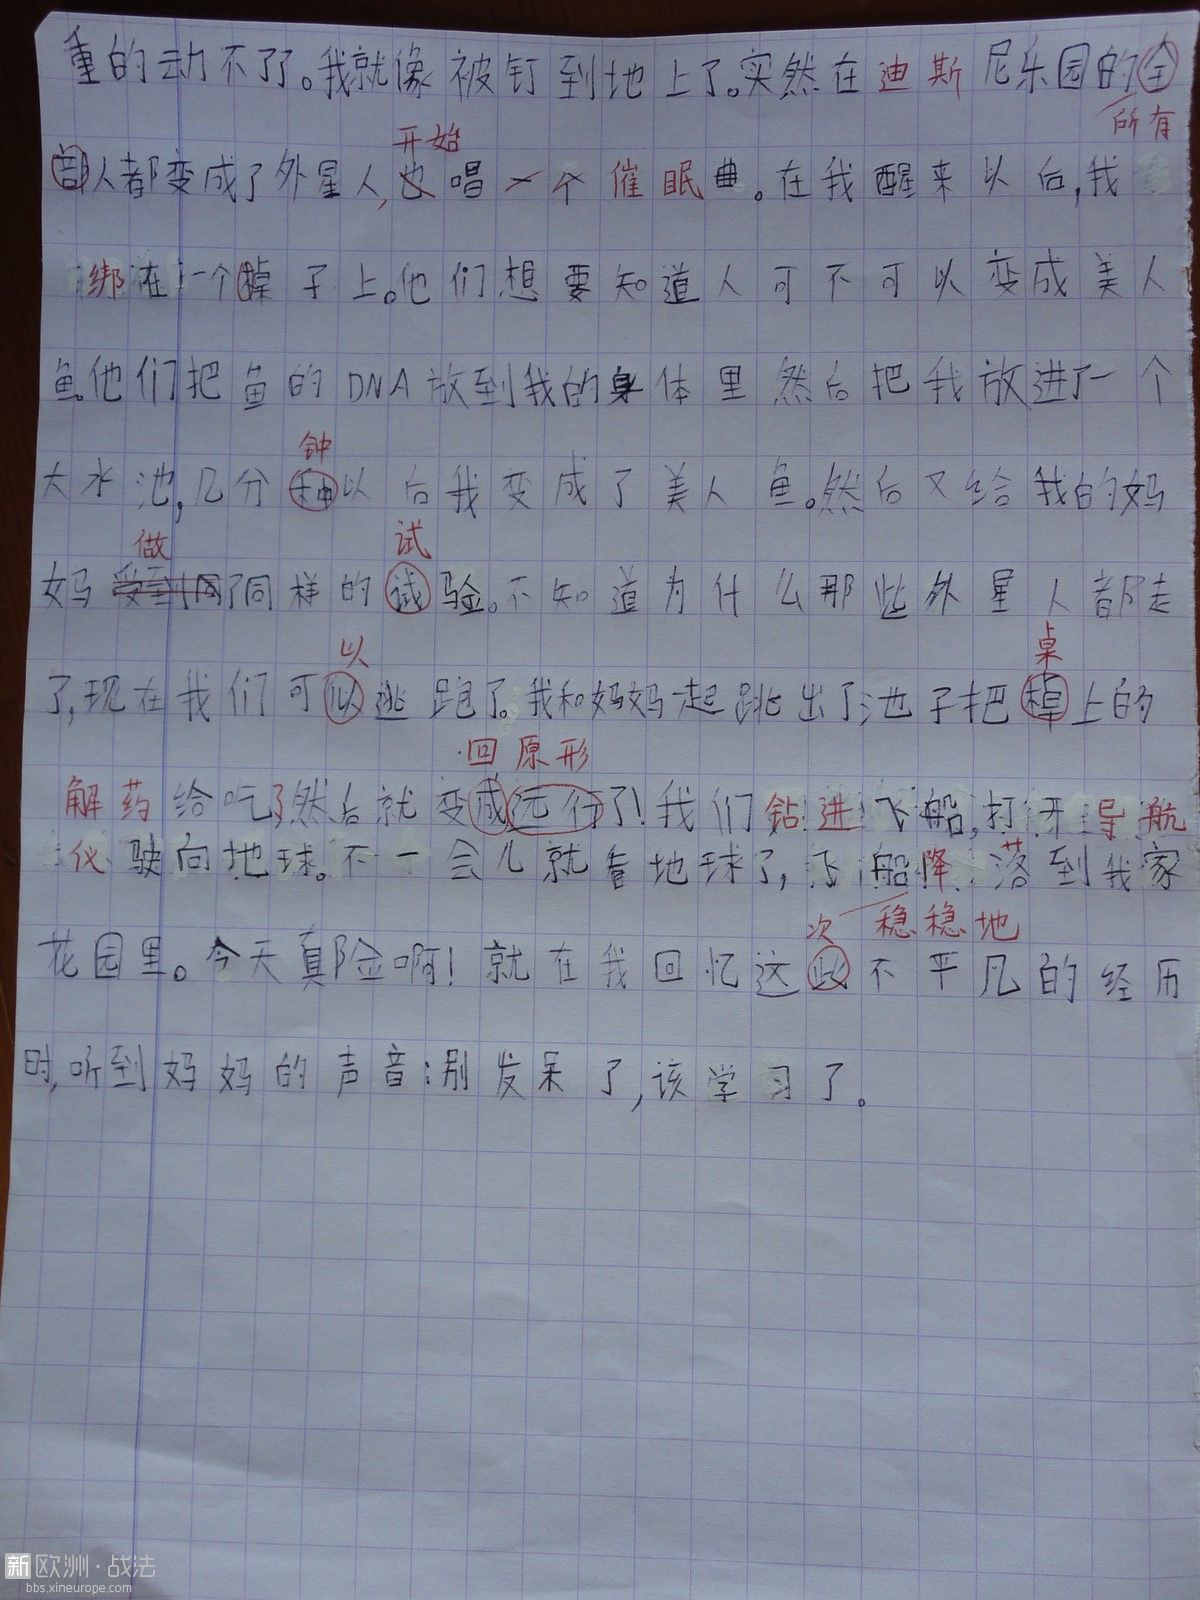 重的动不了。我就像被钉到地上了。突然在迪斯尼乐园的全
所有
开始
部人都变成了外星人,也唱一个催眠曲。在我醒来以后,我
绑在一个桌子上。他们想要知道人可不可以变成美人
鱼。他们把鱼的DNA放到我的身体里然后把我放进了一个
钟
大水池,几分钟以后我变成了美人鱼。然后又给我的妈
做 试
妈 了同样的试验。不知道为什么那些外星人都走
以 桌
了,现在我们可以逃跑了。我和妈妈一起跳出了池子把桌上的
回原形
解药给吃了然后就变成远行了!我们钻进飞船,打开导航
仪驶向地球。不一会儿就看地球了,飞船降落到我家
次 稳稳地
花园里。今天真险啊!就在我回忆这此不平凡的经历
时,听到妈妈的声音:别发呆了,该学习了。
新欧洲·战法
bbs.xineurope.com